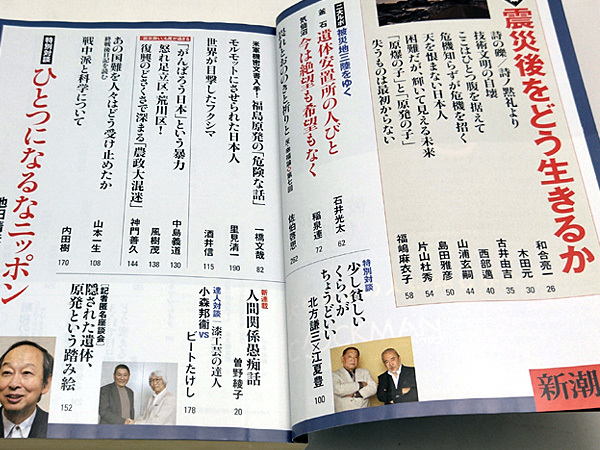 震災後をどう生きるか
詩の礫/詩ノ黙礼より 和合亮一 26
技術文明の自壊 木田元 30
ここはひとつ腹を据えて 古井由吉 35
危機知らずが危機を招く 西部邁 40
天を恨まない日本人 山浦玄嗣 44
困難だが輝いて見える未来 島田雅彦 50
「原爆の子」と「原発の子」 片山杜秀 54
失うものは最初からない 福嶋麻衣子 58
新潮
特別対談
少し貧しい
くらいが
ちょうどいい
北方謙三×江夏豊
100
二大ルポ 被災地三陸をゆく
釜石 遺体安置所の人びと 石井光太 62
気仙沼 今は絶望も希望もなく 稲泉連 72
佐伯啓思 252
米軍機密文書入手! 福島原発の「危険な話」 一橋文哉 82
モルモットにさせられた日本人 里見清一 190
世界が目撃したフクシマ 酒井信 115
「がんばろう日本」という暴力 中島義道 130
怒れ足立区・荒川区! 風樹茂 138
復興のどさくさで深まる「農政大混迷」 神門善久 144
あの国難を人々はどう受け止めたか
終戦後日記を読む
山本一生 108
戦中派と科学について 内田樹 170
特別対談
ひとつになるなニッポン
新連載
人間関係愚痴話
曽野綾子 20
達人対談 「漆工芸の達人」
小森邦衞 vs ビートたけし
178
【記者匿名座談会】
隠された遺体、
原発という踏み絵
152